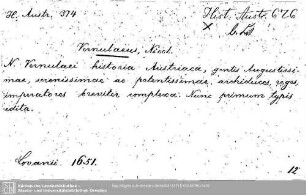 H. Austr. 374
Hist. Austr. 676
X
Vernulaeus, Nicol.
N. Vernulaei historia Austriaca, gentis Augustissi-
mae, serenissimae ac potentissimae, archiduces, reges,
imperatores breviter complexa. Nunc primum typis
edita.
Lovanii. 1651.
12